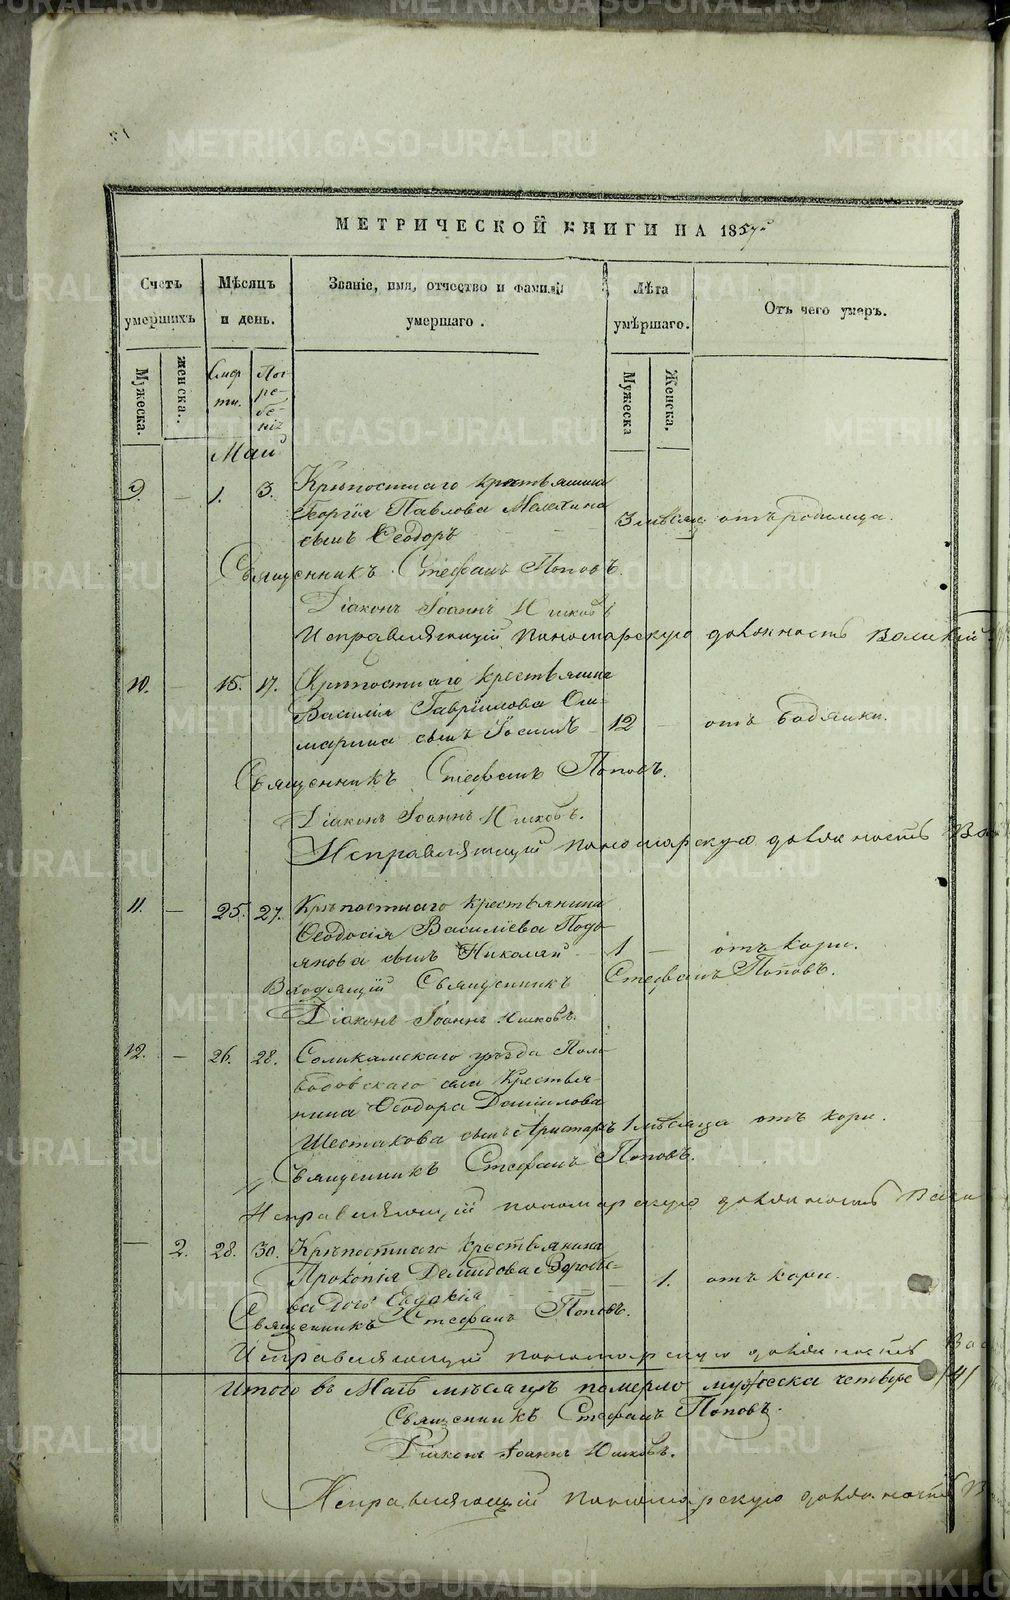 МЕТРИЧЕСКОЙ КНИГИ НА 1857
Счетъ умершихъ
Мѣсяцъ и день.
Званіе, имя, отчество и фамилія умершаго.
Лѣта умѣршаго.
Отъ чего умеръ.
Мужеска.
женска.
Смерти.
Погребенія
Мужеска
Женска.
Май
9. — 1. 3. Крѣпостнаго крестьянина
Георгія Павлова
сынъ Ѳеодоръ 3 мѣсяц отъ родимца.
Священникъ Стефанъ Поповъ.
Діаконъ Іоаннъ
Исправляющій пономарскую должность
10. — 15. 17. Крѣпостнаго крестьянина
Василія Гавріилова
сынъ 12 — отъ водянки.
Священникъ Стефанъ Поповъ.
Діаконъ Іоаннъ
Исправляющій пономарскую должность
11. — 25. 27. Крѣпостнаго крестьянина
Ѳеодосія Василіева
сынъ Николай 1 — отъ кори.
Священникъ Стефанъ Поповъ.
Діаконъ Іоаннъ
12. — 26. 28. Соликамскаго уѣзда
села Крестья-
нина Ѳеодора Даниилова
Шестакова сынъ Аристархъ 1 мѣсяца отъ кори.
Священникъ Стефанъ Поповъ.
Исправляющій пономарскую должность
— 2. 28. 30. Крѣпостнаго крестьянина
Прокопія Демидова
ва дочь Евдокія — 1. отъ кори.
Священникъ Стефанъ Поповъ.
Исправляющій пономарскую должность
Итого въ Маѣ мѣсяцѣ померло мужеска четверо /4/
Священникъ Стефанъ Поповъ.
Діаконъ Іоаннъ
Исправляющій пономарскую должность
METRIKI.GASO-URAL.RU